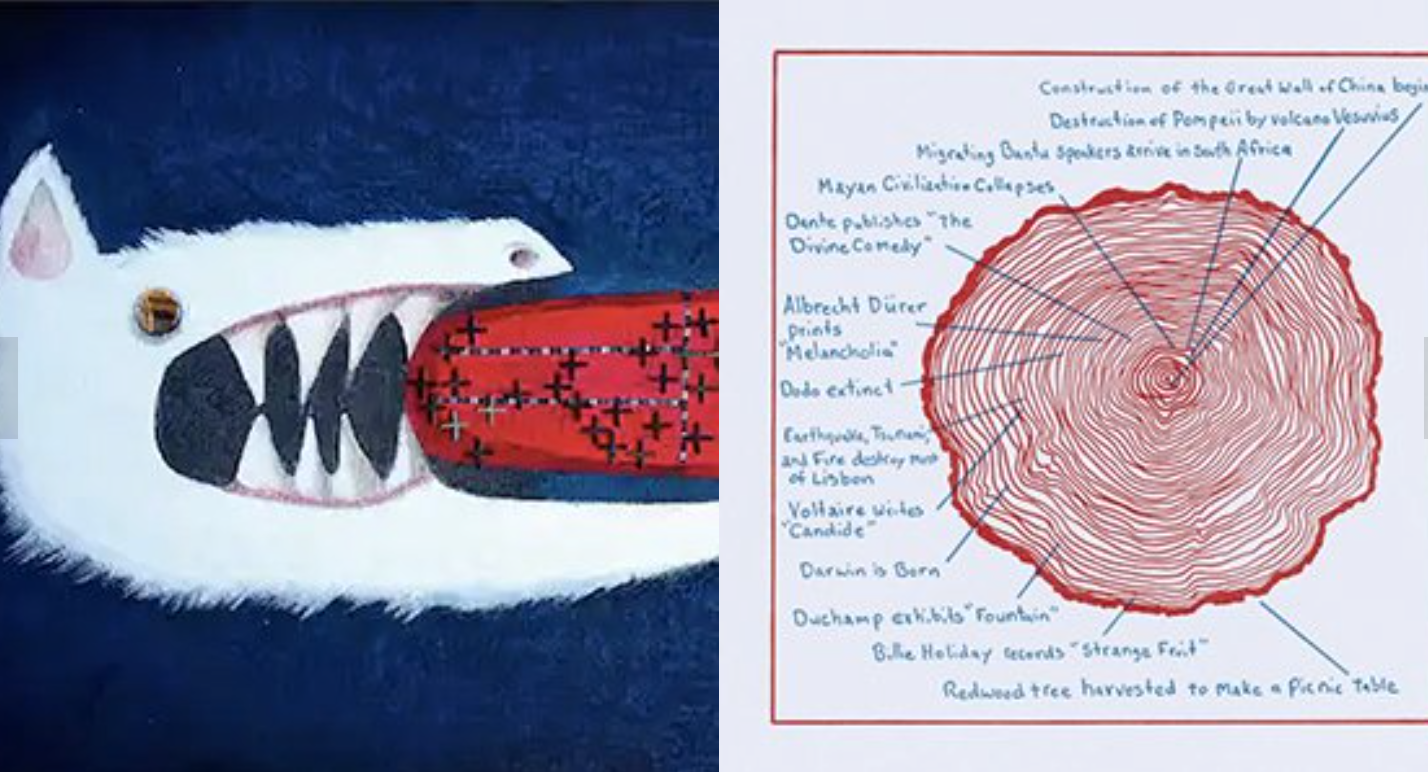 Construction of the Great Wall of China begin
Destruction of Pompeii by volcano Vesuvius
Migrating Bantu speakers arrive in South Africa
Mayan Civilization Collapses
Dante publishes "The
Divine Comedy"
Albrecht Dürer
prints
"Melancholia"
Dodo extinct
Earthquake, Tsunami,
and Fire destroy most
of Lisbon
Voltaire writes
"Candide"
Darwin is Born
Duchamp exhibits "Fountain"
Billie Holiday records "Strange Fruit"
Redwood tree harvested to make a Picnic Table